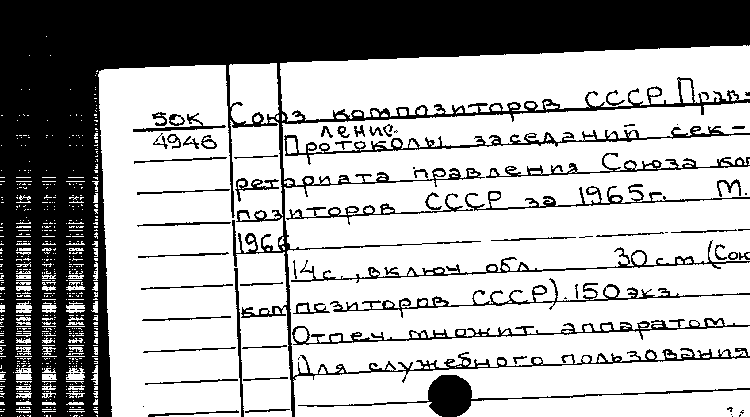 50К Союз композиторов СССР. Прав-
ление.
4946 Протоколы заседаний сек-
ретариата правления Союза ком
позиторов СССР за 1965г. М.
1966.
14с., включ. обл. 30 см. (Союз
композиторов СССР). 150 экз.
Отпеч. множит. аппаратом.
Для служебного пользования